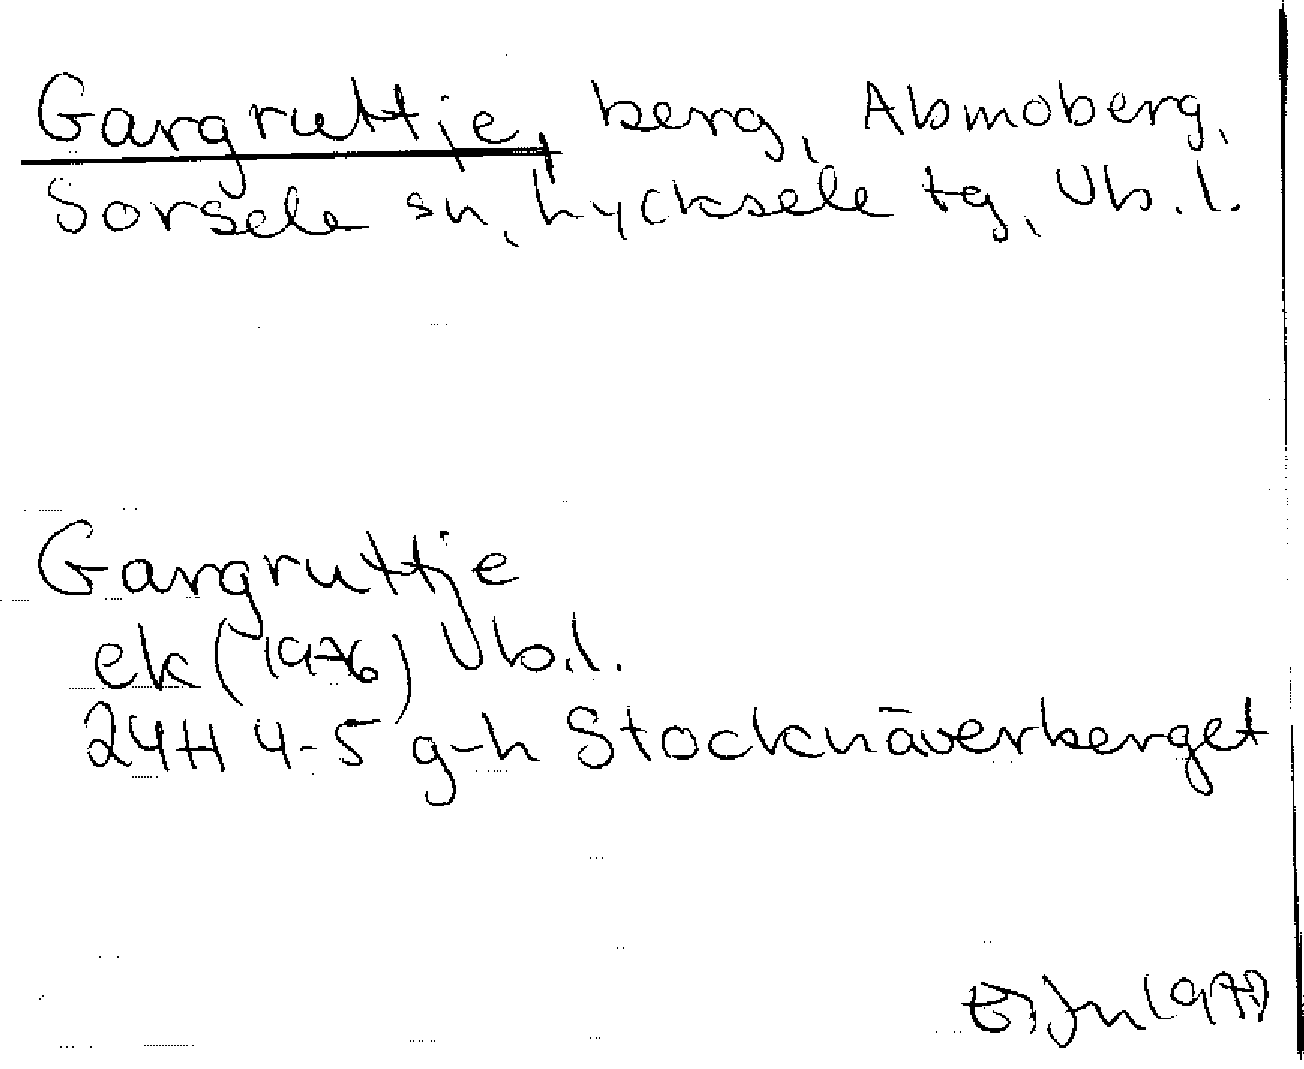 Gargruttje, berg, Abmoberg,
Sorsele sn, Lycksele tg, Vb.l.
Gargruttje
ek (1976) Vb.l.
24H 4-5 g-h Stocknäverberget